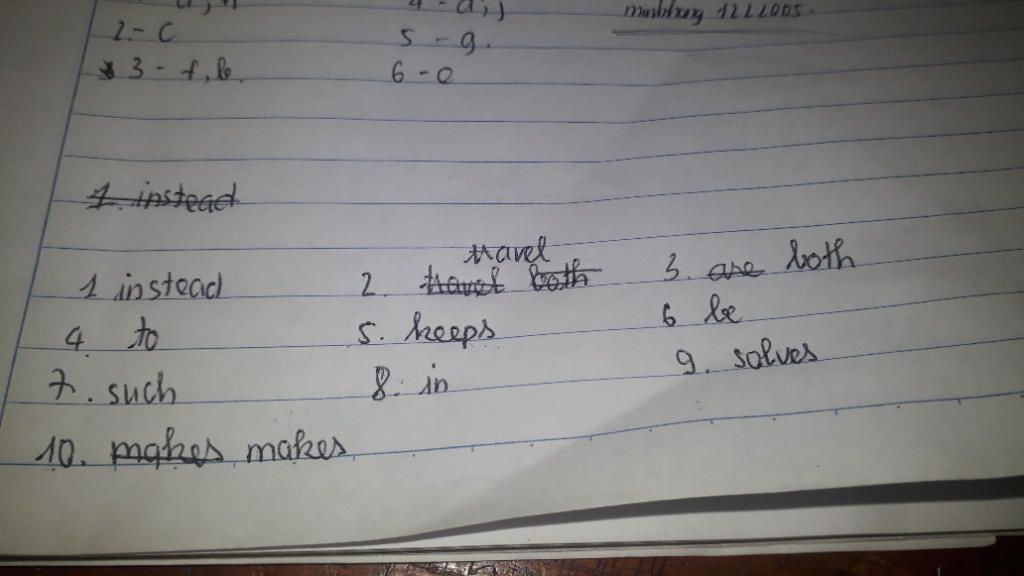 2.- C 5 - g.
3 - f, b. 6 - e
1. instead
travel
1 instead 2. travel both 3. are both
4. to 5. keeps 6 be
7. such 8. in 9. solves
10. makes makes